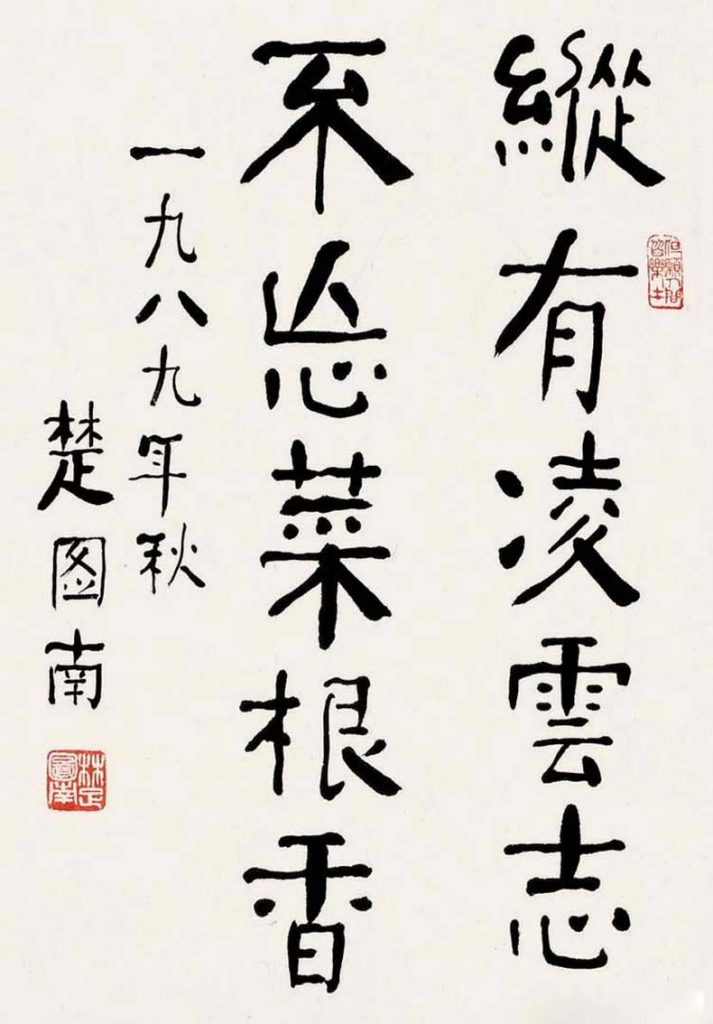 縱有凌雲志
不忘菜根香
一九八九年秋
楚图南
楚圖南